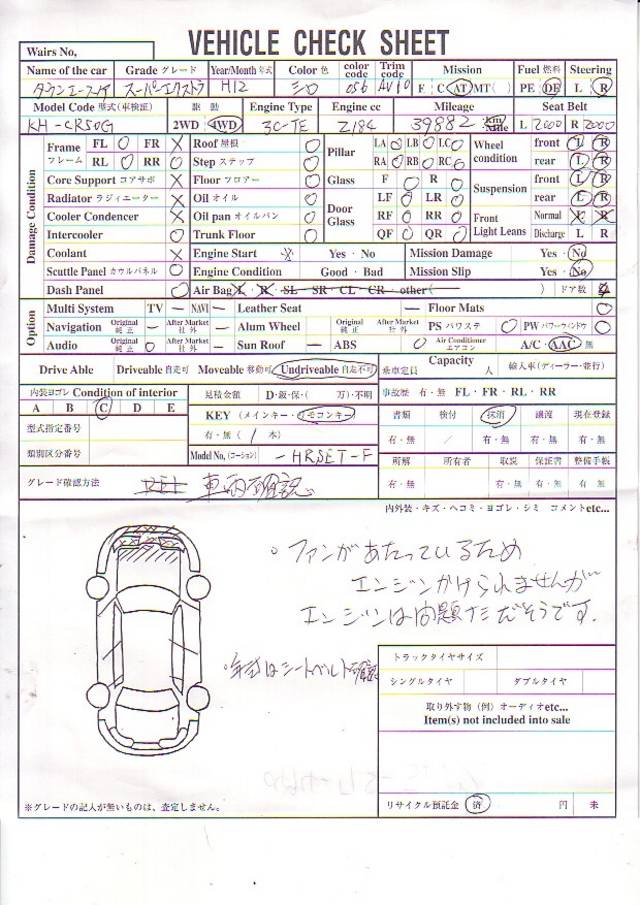 VEHICLE CHECK SHEET
Wairs No,
Name of the car Grade グレード Year/Month 年式 Color 色 color code Trim code Mission Fuel 燃料 Steering
タウンエースノア スーパーエクストラ H12 シロ 056 F C AT MT( ) PE DE L R
Model Code 型式(車検証) 駆動 Engine Type Engine cc Mileage Seat Belt
KH-CR50G 2WD 4WD 3C-TE 2184 39882 km Mile L 2000 R 2000
Damage Condition
Frame フレーム FL O FR X Roof 屋根 O Pillar LA O LB O LC O Wheel condition front L R
RL O RR O Step ステップ O RA O RB O RC O rear L R
Core Support コアサポ X Floor フロアー O Glass F O R O Suspension front L R
Radiator ラジィエーター X Oil オイル O Door Glass LF O LR O rear L R
Cooler Condencer X Oil pan オイルパン O RF O RR O Front Light Leans Normal L R
Intercooler O Trunk Floor O QF O QR O Discharge L R
Coolant X Engine Start X Yes・No Mission Damage Yes・No
Scuttle Panel カウルパネル O Engine Condition Good・Bad Mission Slip Yes・No
Dash Panel O Air Bag L・R・SL・SR・CL・CR・other( ) ドア数 4
Option
Multi System TV — NAVI — Leather Seat — Floor Mats O
Navigation Original 純正 — After Market 社外 — Alum Wheel Original 純正 — After Market 社外 — PS パワステ O PW パワーウィンドウ O
Audio Original 純正 O After Market 社外 — Sun Roof — ABS O Air Conditioner エアコン A/C・AAC —
Drive Able Driveable 自走可 Moveable 移動可 Undriveable 自走不可 乗車定員 Capacity 人 輸入車(ディーラー・並行)
内装ヨゴレ Condition of interior 見積金額 D・鈑・保・( 万)・不明 事故歴 有・無 FL・FR・RL・RR
A B C D E KEY (メインキー・リモコンキー) 書類 検付 抹消 譲渡 現在登録
型式指定番号 有・無 ( 1 本) 有・無 / 有・無 有・無 有・無
類別区分番号 Model No, (コーション) -HRSET-F 所解 所有者 取説 保証書 整備手帳
グレード確認方法 車両確認 有・無 有・無 有・無 有・無
内外装・キズ・ヘコミ・ヨゴレ・シミ コメントetc...
。ファンがあたっているため
エンジンかけられませんが
エンジンは問題ナシだそうです.
・年式はシートベルト確認
トラックタイヤサイズ
シングルタイヤ ダブルタイヤ
取り外す物 (例) オーディオetc...
Item(s) not included into sale
※グレードの記入が無いものは、査定しません。
リサイクル預託金 済 円 未